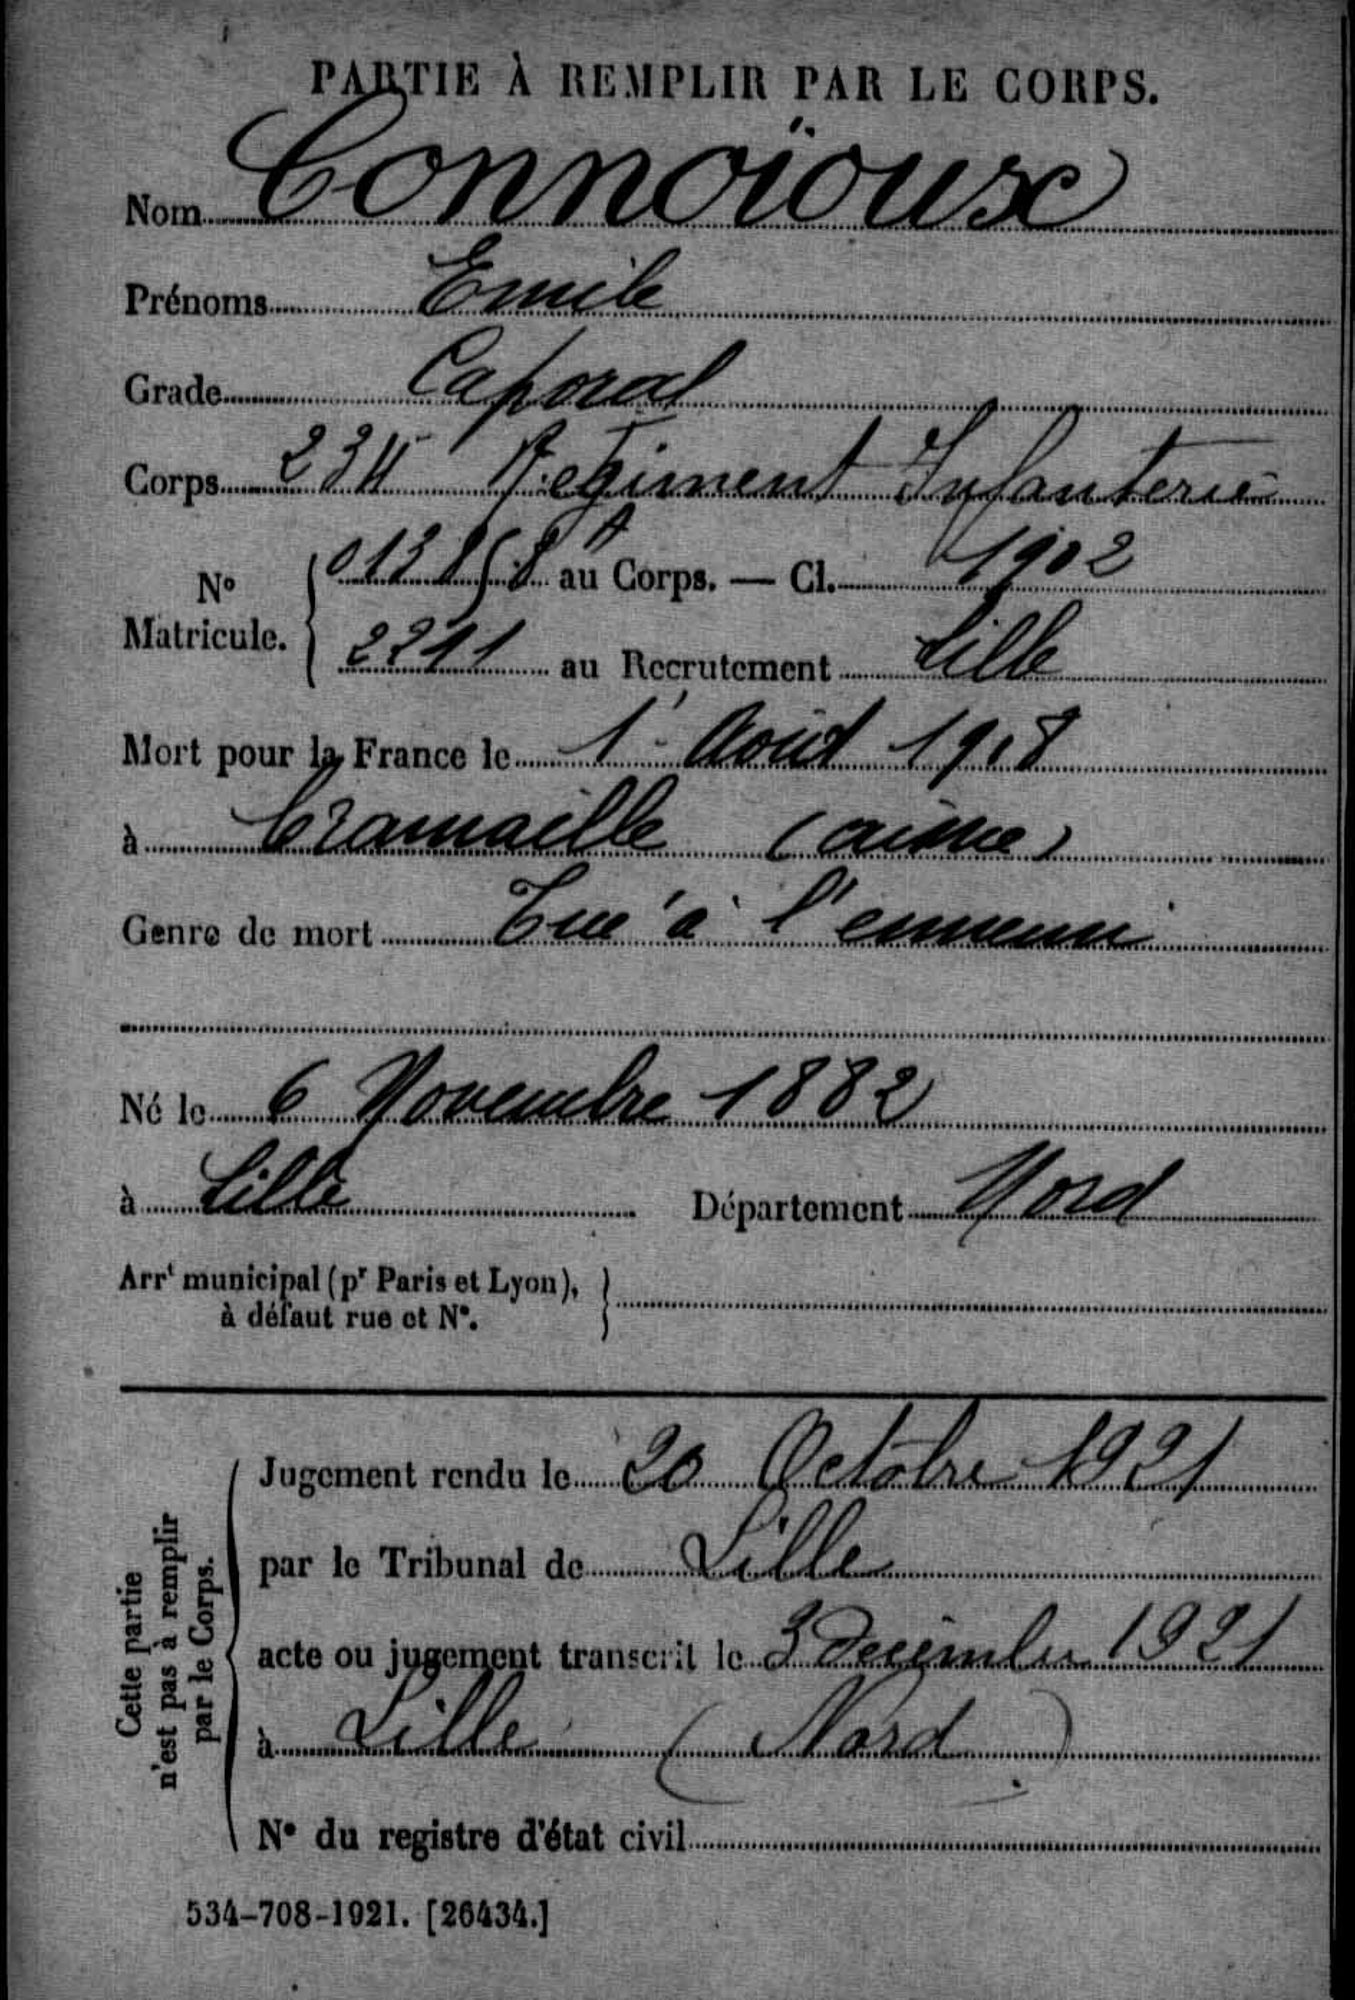 PARTIE À REMPLIR PAR LE CORPS.
Nom Connoïoux
Prénoms Emile
Grade Caporal
Corps 234 Régiment Infanterie
N° Matricule. 013858 A au Corps. — Cl. 1902
2211 au Recrutement Lille
Mort pour la France le 1er Août 1918
à Cramaille (aisne)
Genre de mort Tué à l'ennemi
Né le 6 Novembre 1882
à Lille Département Nord
Arrt municipal (pr Paris et Lyon),
à défaut rue et N°.
Cette partie
n'est pas à remplir
par le Corps.
Jugement rendu le 20 Octobre 1921
par le Tribunal de Lille
acte ou jugement transcrit le 3 décembre 1921
à Lille (Nord)
N° du registre d'état civil
534-708-1921. [26434.]